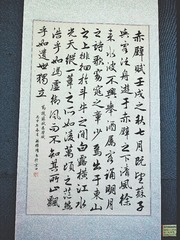 赤壁賦壬戌之秋七月既望蘇子
與客泛舟遊於赤壁之下清風徐
來水波不興舉酒屬客誦明月
之詩歌窈窕之章少焉月出於東山
之上徘徊於斗牛之間白露橫江水
光接天縱一葦之所如凌萬頃之茫然
浩乎如馮虛御風而不知其所止飄
乎如遺世獨立